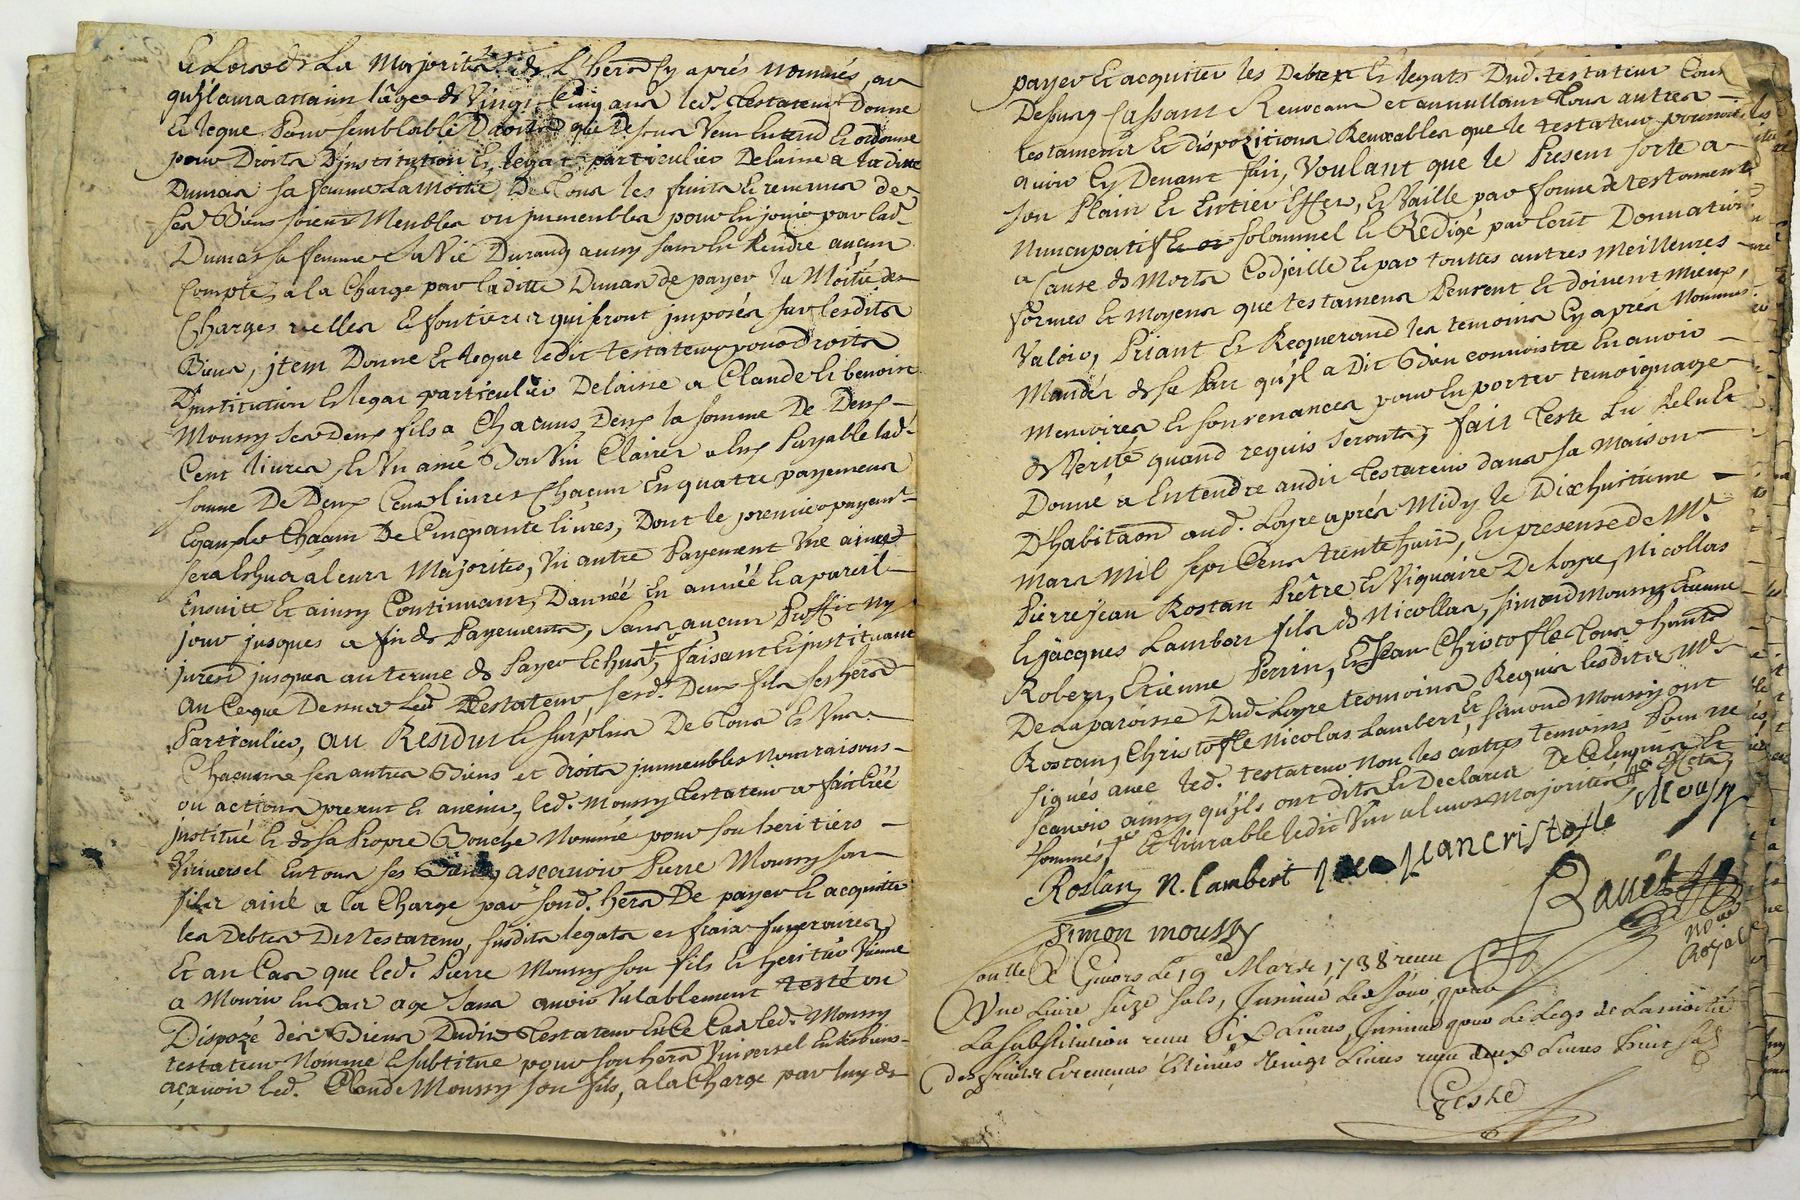 Et Lorsods La Majorité de L'hera Cy aprés nommés, ou
qu'il aura attaint l'âge de Vingt Cinq ans led. Testateur Donne
Et legue Pour semblable Droits que Dessus Veut Entend Et ordonne
pour Droits D'institution Et legat particulier Delaisse a ladite
Dumas sa femme La Moitié De Tous les fruits Et revenus de
ses Biens soient Meubles ou jmmeubles pour En jouir par lad.
Dumas sa femme sa Vie Durand ainsy sans En Rendre auçun
Compte, a la Charge par laditte Dumas de payer la Moitié des
Charges reelles Et fontieres qui seront jmposées sur lesdits
Biens, jtem Donne Et legue ledit testateur pour Droits
D'institution Et legat particulier Delaisse a Claude Et benoist
Moussy ses Deux fils a Chacuns Deux la somme De Deux
Cent livres Et Vn ané Bon Vin Clairet a Eux Payable lad.
somme De Deux Cent livres Chacun En quatre payements
Egaux de Chacun De Cinquante livres, Dont le premier payemt
sera Eschu a leurs Majorités, Vn autre Payement Vne année
Ensuite Et ainsy Continuant, D'année En année Et a pareil
jour jusques a fin de Payements, sans aucun Proffit ny
jnterest jusques au terme de Payer Echus, faisant Et jnstituant
au Ceque Dessus led. Testateur, sesd. Deux fils ses hera
Particulier, au Residu Et surplus De Tous Et Vns
Chacuns ses autres Biens et droits jmmeubles Noms raisons
ou actions present Et avenir, led. Moussy Testateur a fait Créé
jnstitué Et de sa Propre Bouche Nommé pour son heritiers
Vniversel En tous ses Biens, ascavoir Pierre Moussy son
fils ainé a la Charge par sond. hera De payer Et acquitter
les Debtes Du Testateur, susdits legats et fraix funeraires,
Et au Cas que led. Pierre Moussy son fils Et heritier Vienne
a Mourir En bas age sans avoir Valablement testé ou
Dispozé des Biens Dudit Testateur En Ce Cas led. Moussy
testateur Nomme Et subtitue pour son hera Vniversel En sesbiens
açavoir led. Claude Moussy son fils, a la Charge par luy de
payer Et acquiter les Debtes Et legats Dud. testateur Comme
Dessus, Cassant Revocant et annullant Tous autres
testaments Et dispozitions Revocables que le testateur pourroit
avoir Cy Devant fait, Voulant que le Present sorte a
son Plain Et Entier Effet, Et Vaille par forme de testament
Nuncupatif Et solomnel Et Redigé par Ecrit Donnation
a Cause de Morts Codjcille Et par touttes autres meilleures
formes Et Moyens que testaments Peuvent Et doivent Mieux,
Valoir, Priant Et Requerand les temoins Cy aprés Nommés
Mandés de sa Part qu'jl a Dit Bien connoistre En avoir
Memoires Et souvenances pour En porter temoignage
de Verité quand requis seronts, fait Testé Lu Relu Et
Donné a Entendre audit Testateur dans sa Maison
D'habitaon aud. Loyre aprés Midy le Dixhuitiéme
Mars Mil sept Cens trente huit, En presense de Mr.
Pierre jean Rostan Prêtre Et Viquaire De Loyre, Nicollas
Et jacques Lambert fils de Nicollas, simond Moussy Etienne
Robert, Etienne Perrin, Et Jean Christofle Tous habitts
De la paroisse Dud. Loyre temoins Requis lesdits Mr
Rostan, Christofle Nicolas Lambert, Et simond Moussy ont
signés avec led. testateur Non les autres temoins Pour ne
scavoir ainsy qu'jls ont dits Et Declarés De Ce Enquis Et
sommés, Et livrable ledit Vin a leurs Majorités
Rostan N. Lambert jean cristofle Moussy
simon moussy Bauet
No. Royale
Conlle A Givors Le 19e Mars 1738 receu
Une Livre seize sols, Insinué led. jour, pour
La substitution receu Dix Livres, Insinué pour Le Legs de La moitié
des fruits Et revenus Estimés Vingt Livres receu deux Livres huit sols
Geshe